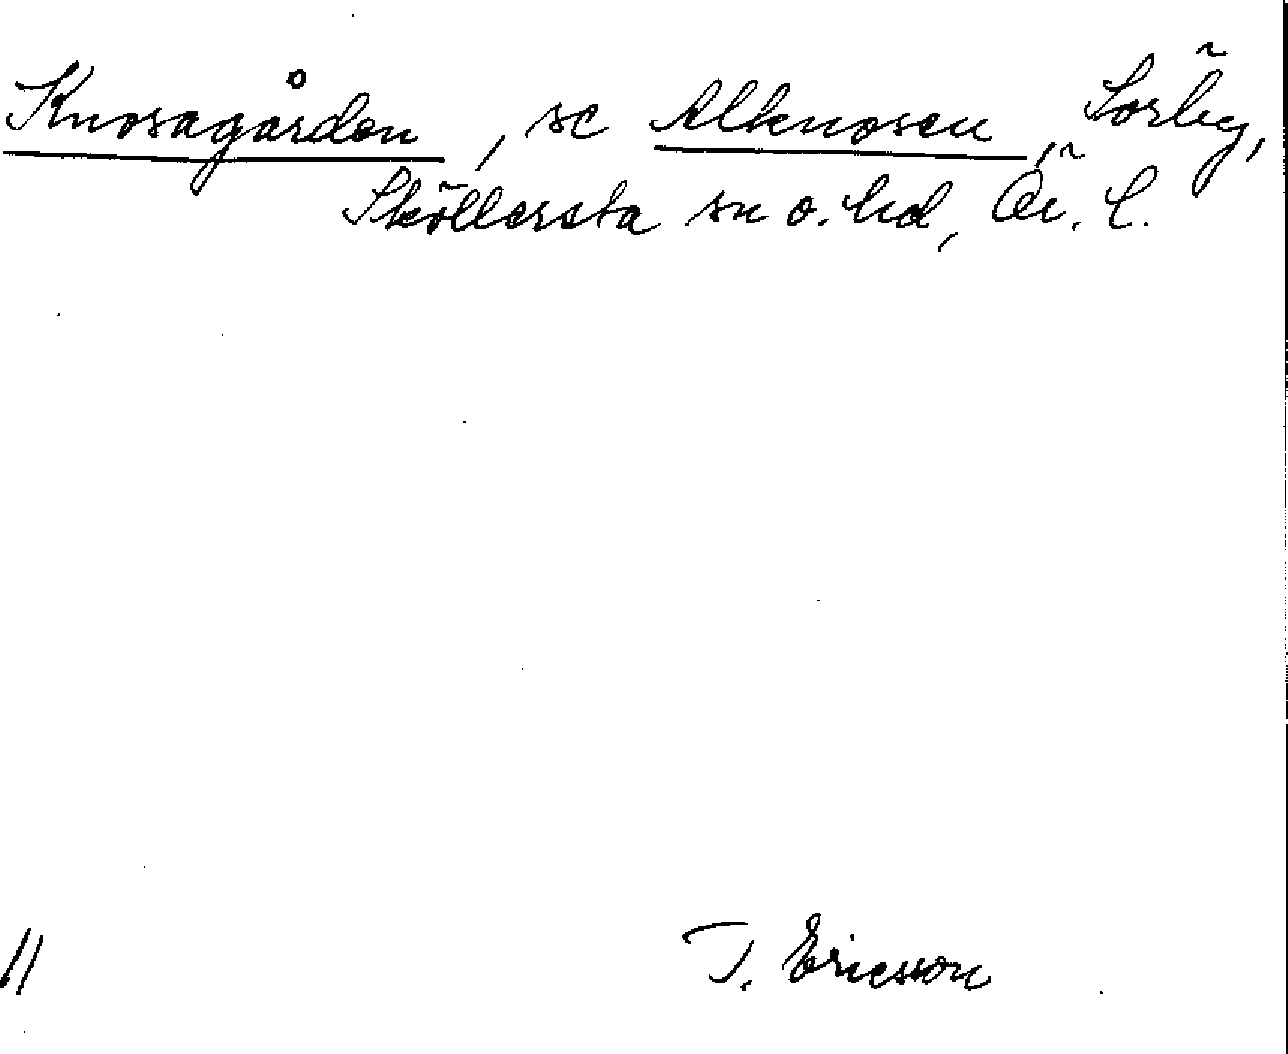 Knosagården, se Alknosen, Sörby,
Sköllersta sn o. hd, Ör. l.
11
T. Ericsson